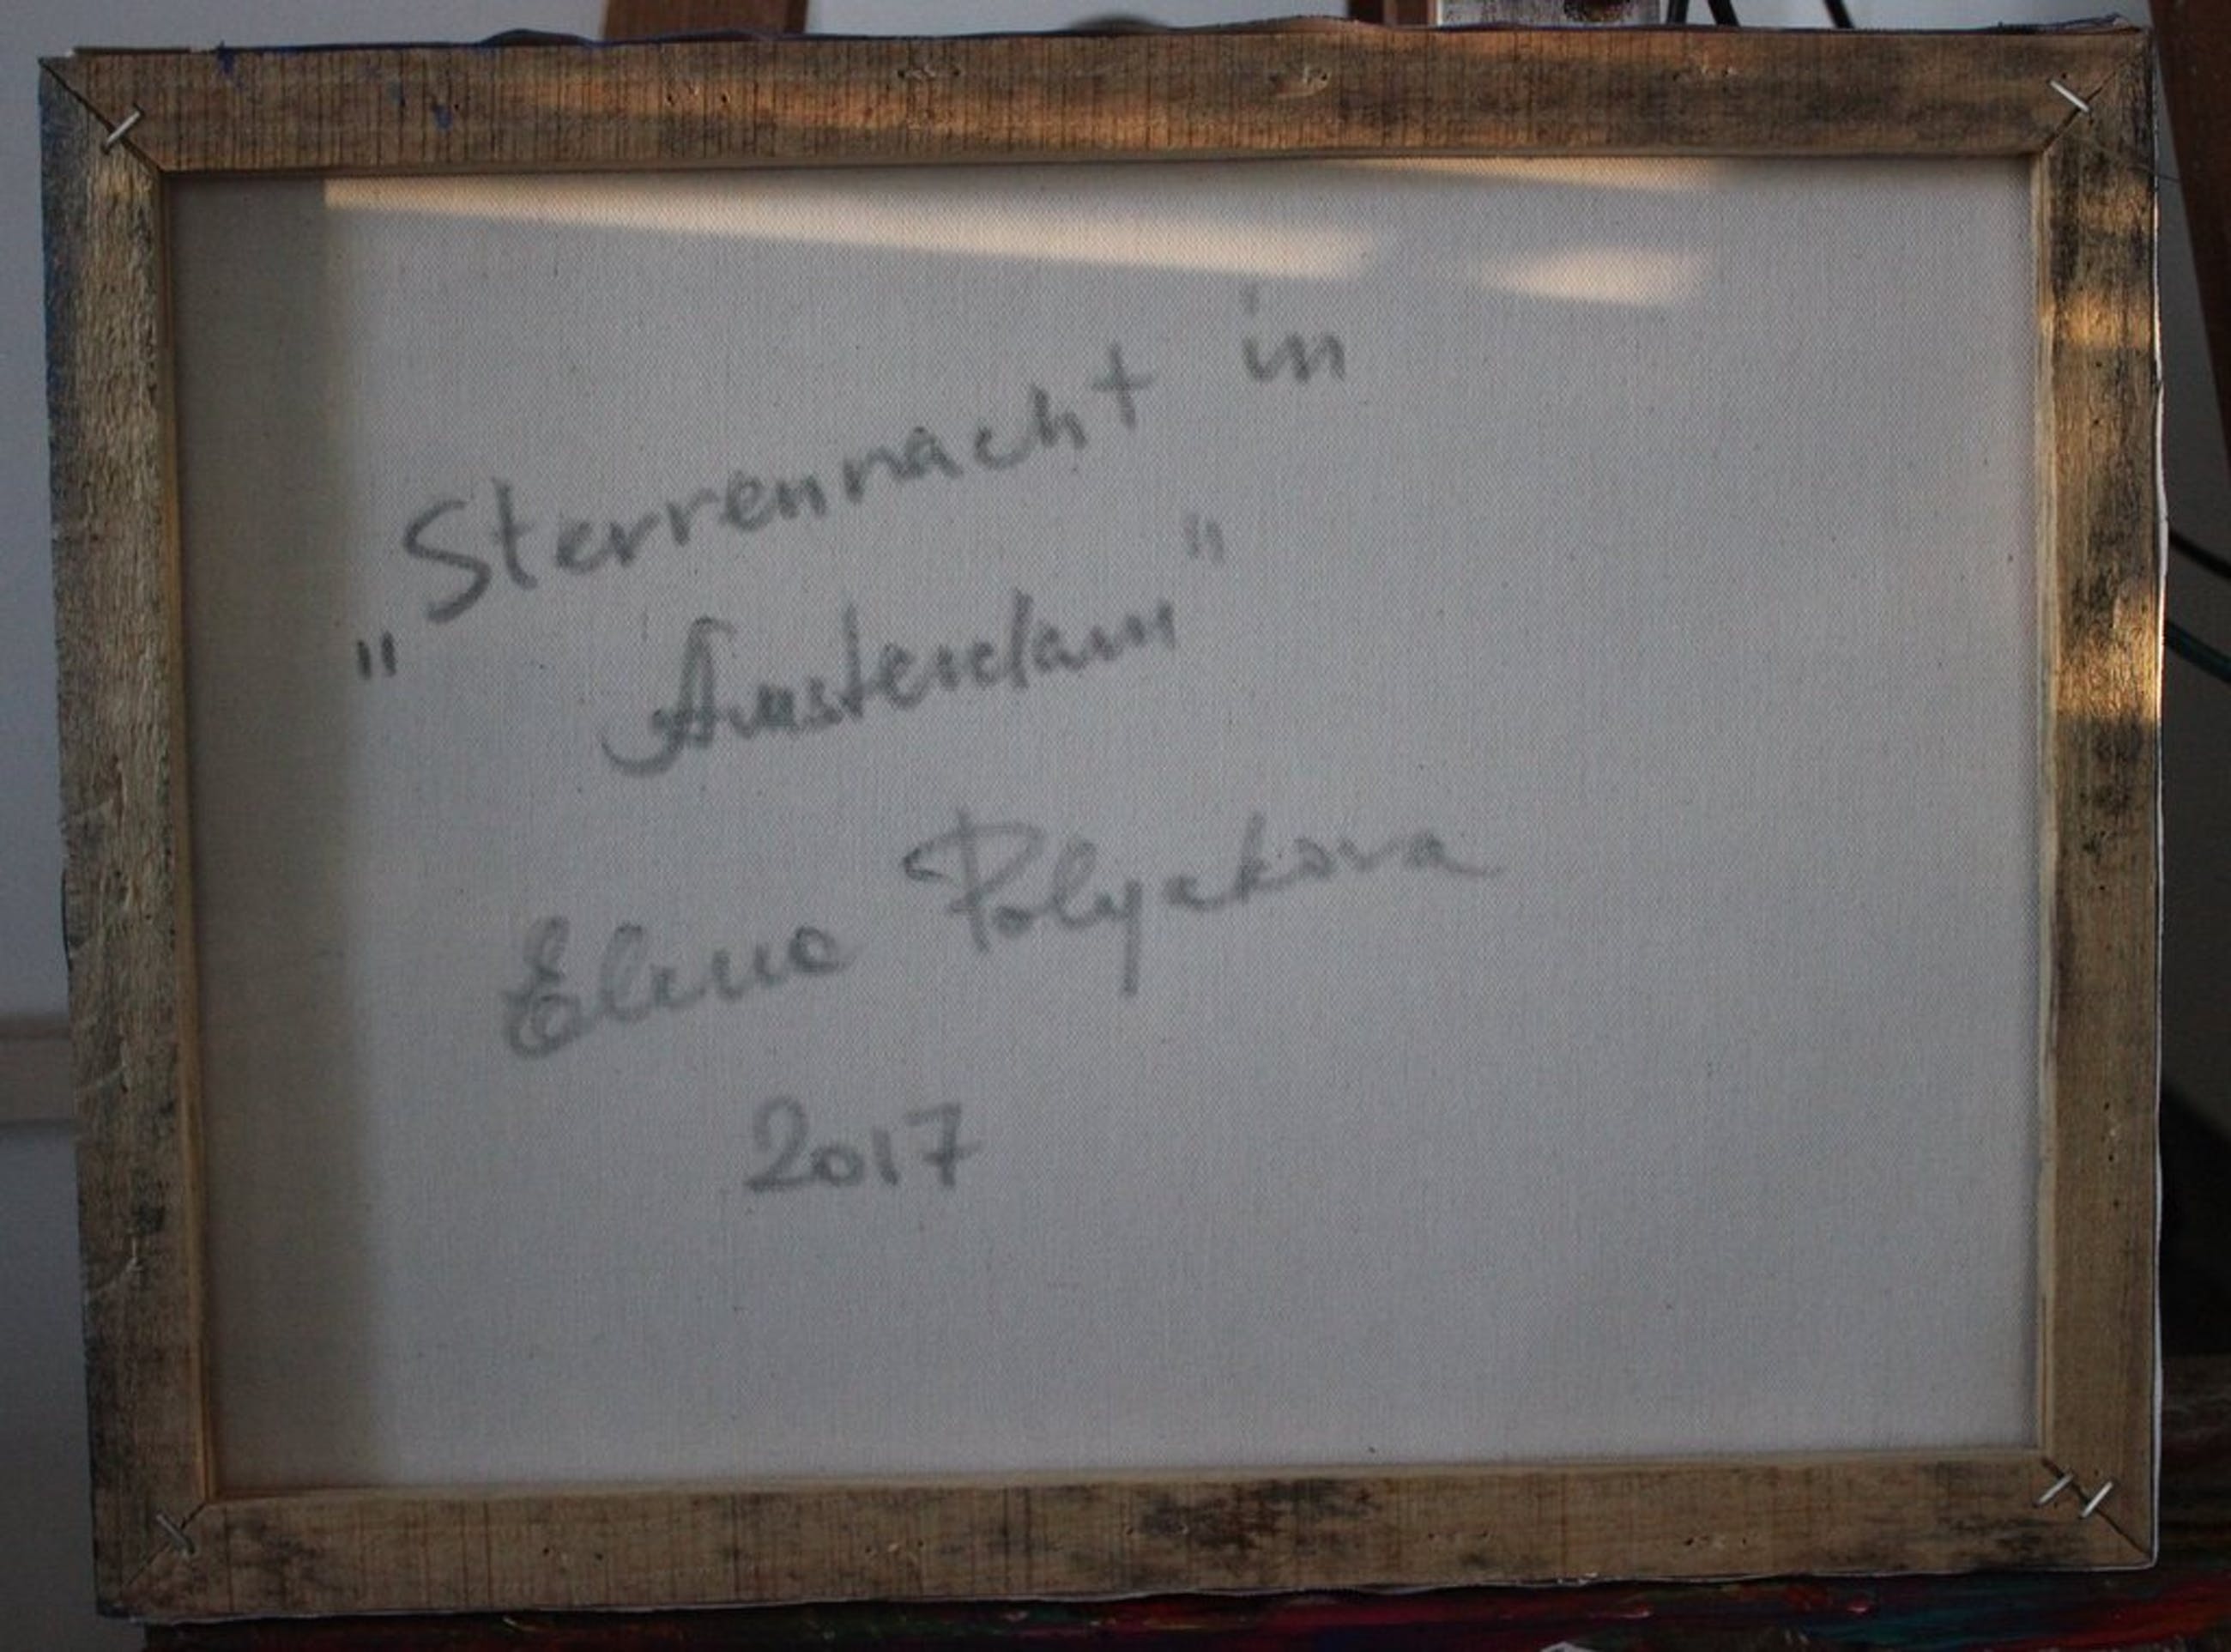 „Sterrennacht in
Amsterdam"
Elena Polyakova
2017